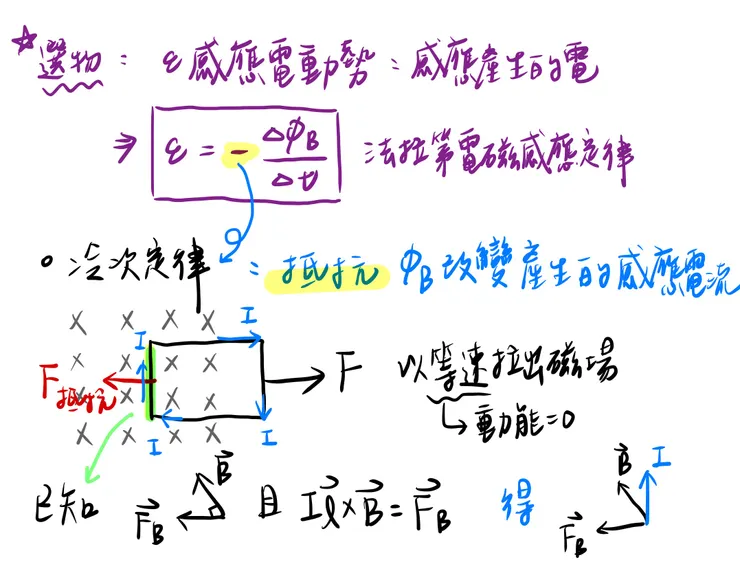 ☆選物: ε感應電動勢:感應產生的電
⇒ ε = - ΔφB/Δt 法拉第電磁感應定律
。冷次定律 = 抵抗 φB改變產生的感應電流
× × × ×
I I
× × × ×
F抵抗 F 以等速拉出磁場
× × × ×
↳ 動能=0
× × × ×
I I
已知 F⃗B B⃗ 且 Iℓ⃗×B⃗=F⃗B 得 B⃗ I F⃗B